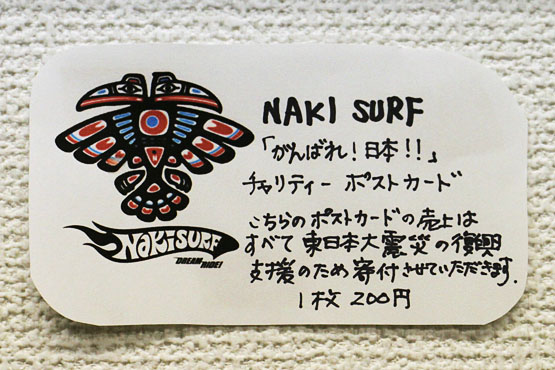 NAKI SURF
「がんばれ！日本！！」
チャリティー ポストカード
こちらのポストカードの売上は
すべて東日本大震災の復興
支援のため寄付させていただきます.
1枚 200円
NAKISURF
DREAM RIDE!